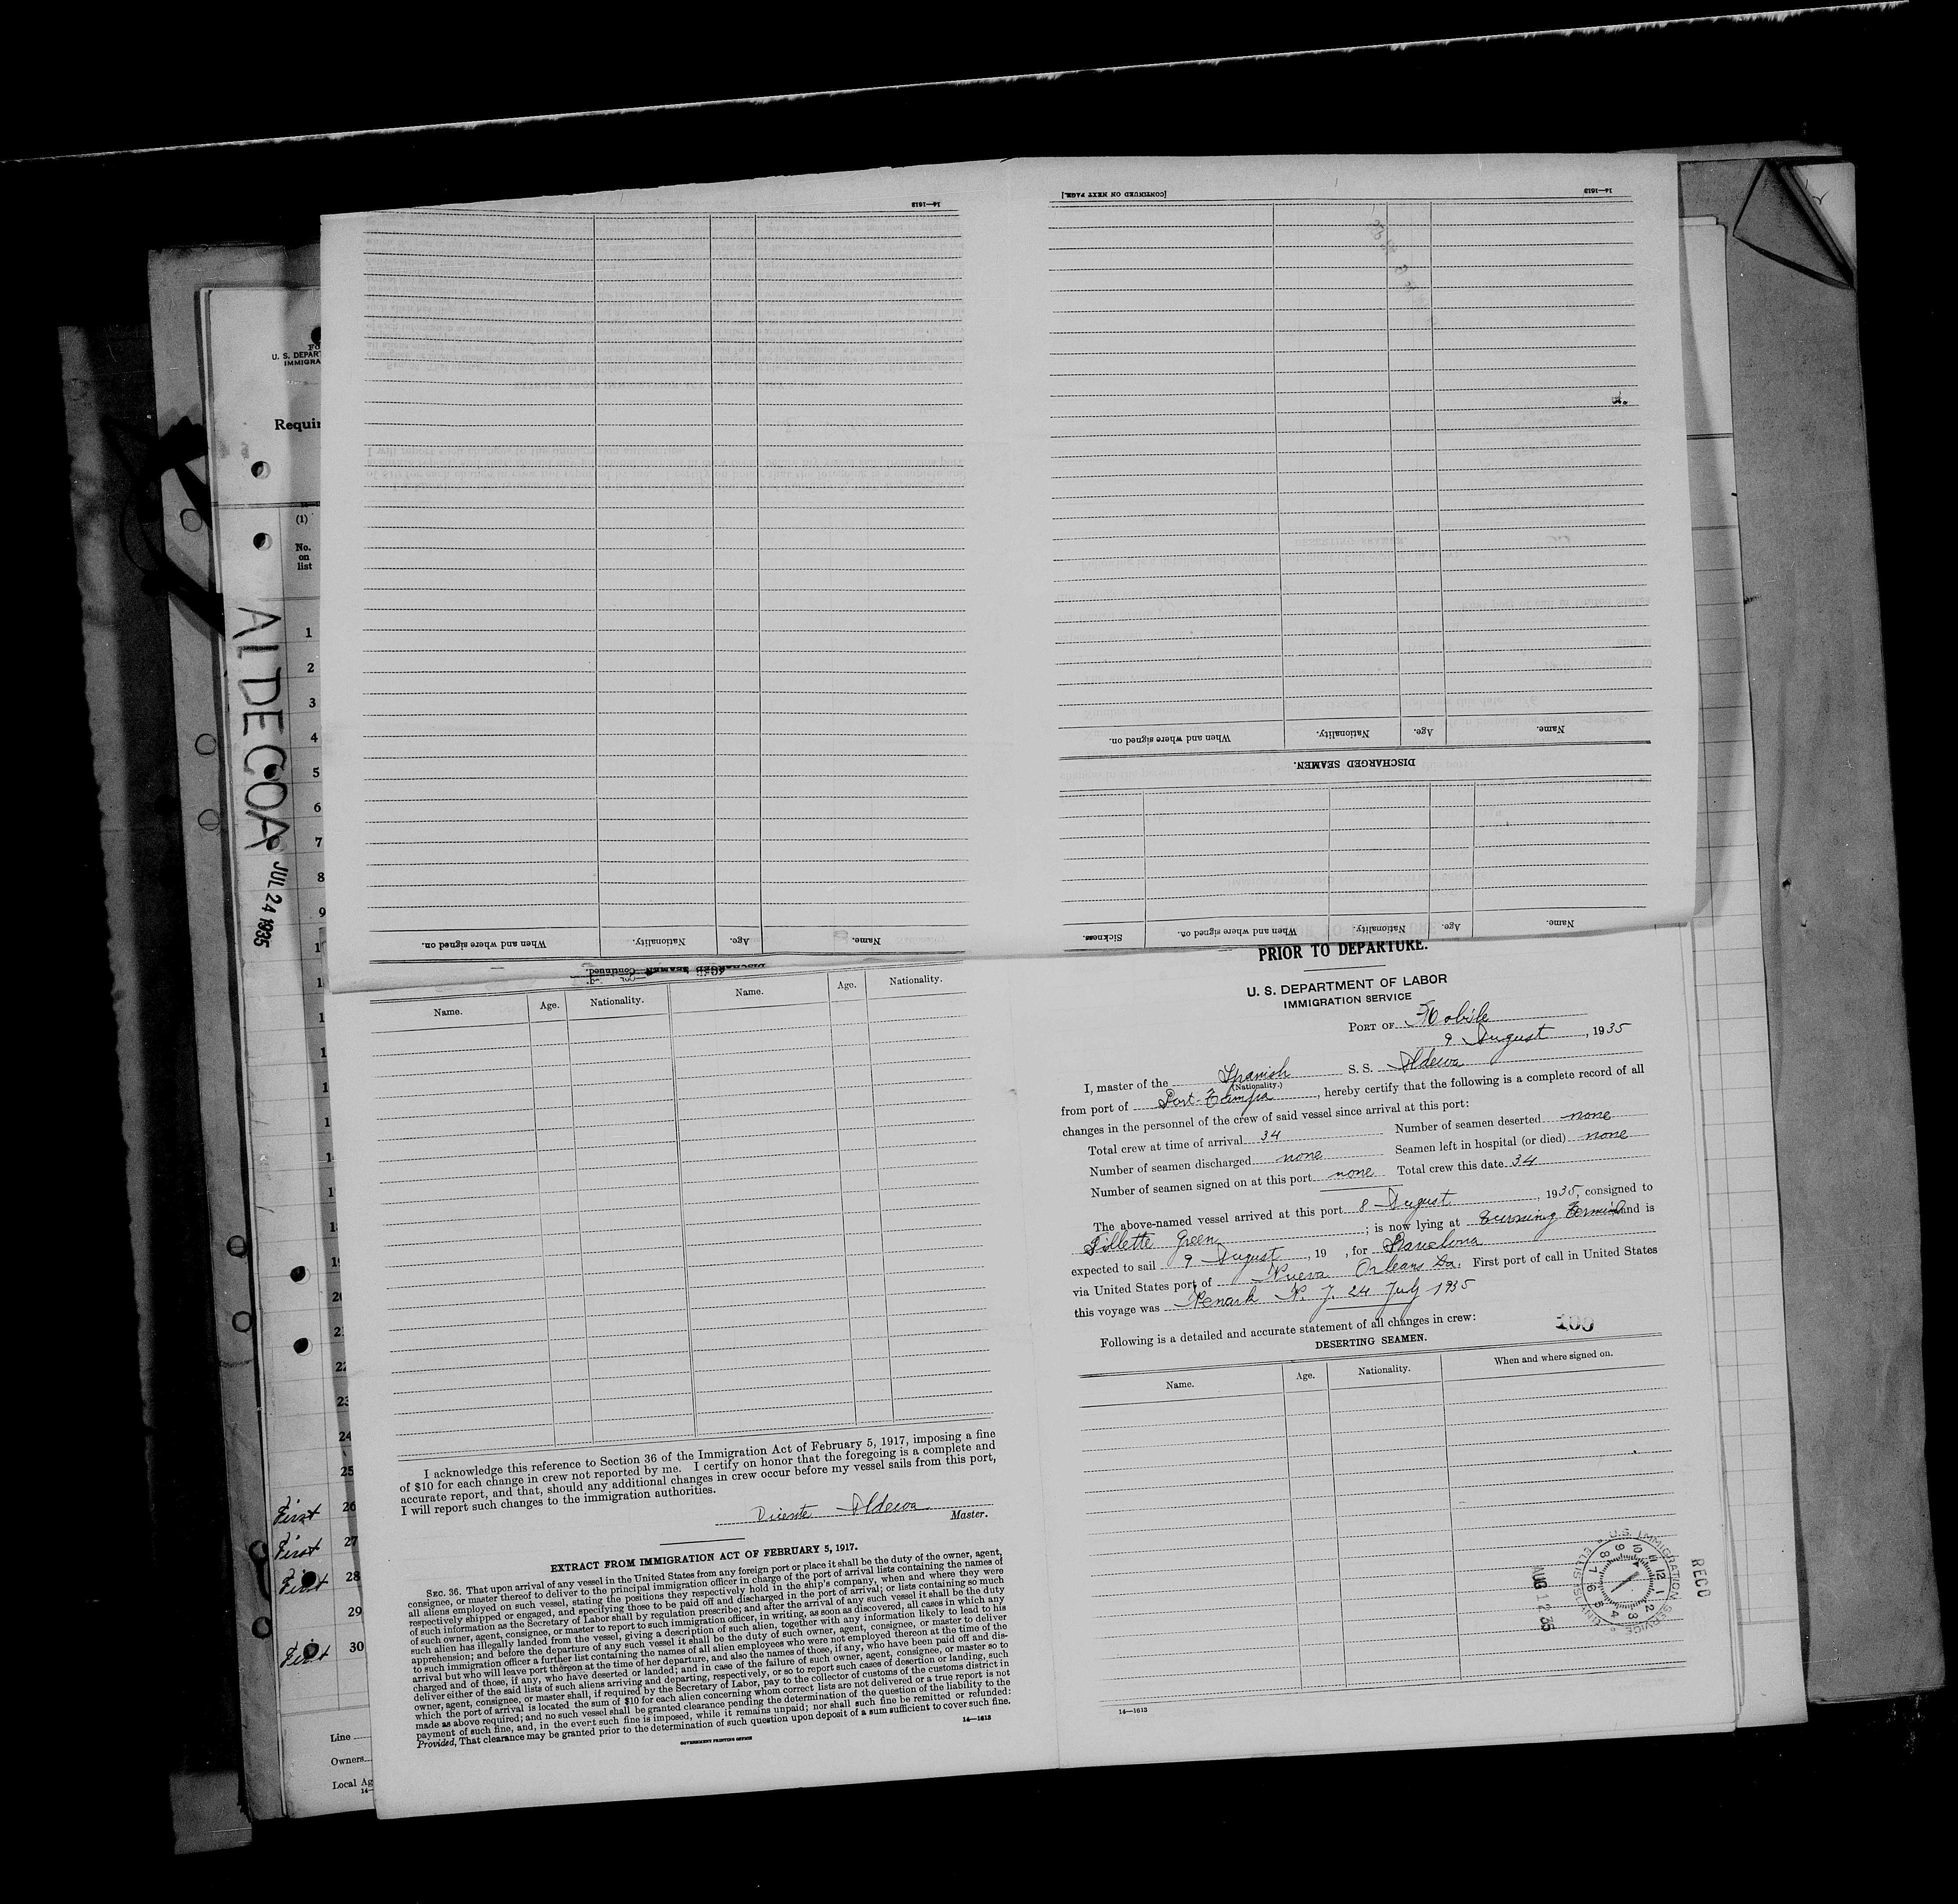 14—1613
[CONTINUED ON NEXT PAGE.]
14—1613
U. S. DEPART
IMMIGRA
Requir
(1)
No.
on
list
ALDECOA
JUL 24 1935
1
2
3
4
5
6
7
8
9
1
1
1
1
1
1
1
1
18
19
20
21
22
23
24
25
First 26
First 27
First 28
29
First 30
Line
Owners
Local Ag
14—
Name. Age. Nationality. When and where signed on.
DISCHARGED SEAMEN.
Name. Age. Nationality. When and where signed on. Sickness.
Name. Age. Nationality. When and where signed on.
DISCHARGED SEAMEN Continued.
Name. Age. Nationality. Name. Age. Nationality.
I acknowledge this reference to Section 36 of the Immigration Act of February 5, 1917, imposing a fine
of $10 for each change in crew not reported by me. I certify on honor that the foregoing is a complete and
accurate report, and that, should any additional changes in crew occur before my vessel sails from this port,
I will report such changes to the immigration authorities.
Vicente Aldecoa
Master.
EXTRACT FROM IMMIGRATION ACT OF FEBRUARY 5, 1917.
SEC. 36. That upon arrival of any vessel in the United States from any foreign port or place it shall be the duty of the owner, agent,
consignee, or master thereof to deliver to the principal immigration officer in charge of the port of arrival lists containing the names of
all aliens employed on such vessel, stating the positions they respectively hold in the ship's company, when and where they were
respectively shipped or engaged, and specifying those to be paid off and discharged in the port of arrival; or lists containing so much
of such information as the Secretary of Labor shall by regulation prescribe; and after the arrival of any such vessel it shall be the duty
of such owner, agent, consignee, or master to report to such immigration officer, in writing, as soon as discovered, all cases in which any
such alien has illegally landed from the vessel, giving a description of such alien, together with any information likely to lead to his
apprehension; and before the departure of any such vessel it shall be the duty of such owner, agent, consignee, or master to deliver
to such immigration officer a further list containing the names of all alien employees who were not employed thereon at the time of the
arrival but who will leave port thereon at the time of her departure, and also the names of those, if any, who have been paid off and dis-
charged and of those, if any, who have deserted or landed; and in case of the failure of such owner, agent, consignee, or master so to
deliver either of the said lists of such aliens arriving and departing, respectively, or so to report such cases of desertion or landing, such
owner, agent, consignee, or master shall, if required by the Secretary of Labor, pay to the collector of customs of the customs district in
which the port of arrival is located the sum of $10 for each alien concerning whom correct lists are not delivered or a true report is not
made as above required; and no such vessel shall be granted clearance pending the determination of the question of the liability to the
payment of such fine, and, in the event such fine is imposed, while it remains unpaid; nor shall such fine be remitted or refunded:
Provided, That clearance may be granted prior to the determination of such question upon deposit of a sum sufficient to cover such fine.
GOVERNMENT PRINTING OFFICE
14—1613
PRIOR TO DEPARTURE.
U. S. DEPARTMENT OF LABOR
IMMIGRATION SERVICE
PORT OF Mobile
9 August, 1935
I, master of the Spanish S. S. Aldecoa
(Nationality.)
from port of Port Tampa, hereby certify that the following is a complete record of all
changes in the personnel of the crew of said vessel since arrival at this port:
Total crew at time of arrival 34 Number of seamen deserted none
Number of seamen discharged none Seamen left in hospital (or died) none
Number of seamen signed on at this port none Total crew this date 34
The above-named vessel arrived at this port 8 August, 1935, consigned to
Fillette Green; is now lying at Turning Terminal and is
expected to sail 9 August, 19 , for Barcelona
via United States port of Nueva Orleans La. First port of call in United States
this voyage was Newark N. J. 24 July 1935
Following is a detailed and accurate statement of all changes in crew: 100
DESERTING SEAMEN.
Name. Age. Nationality. When and where signed on.
U.S. IMMIGRATION SERVICE
RECD
AUG 12 35
14—1613